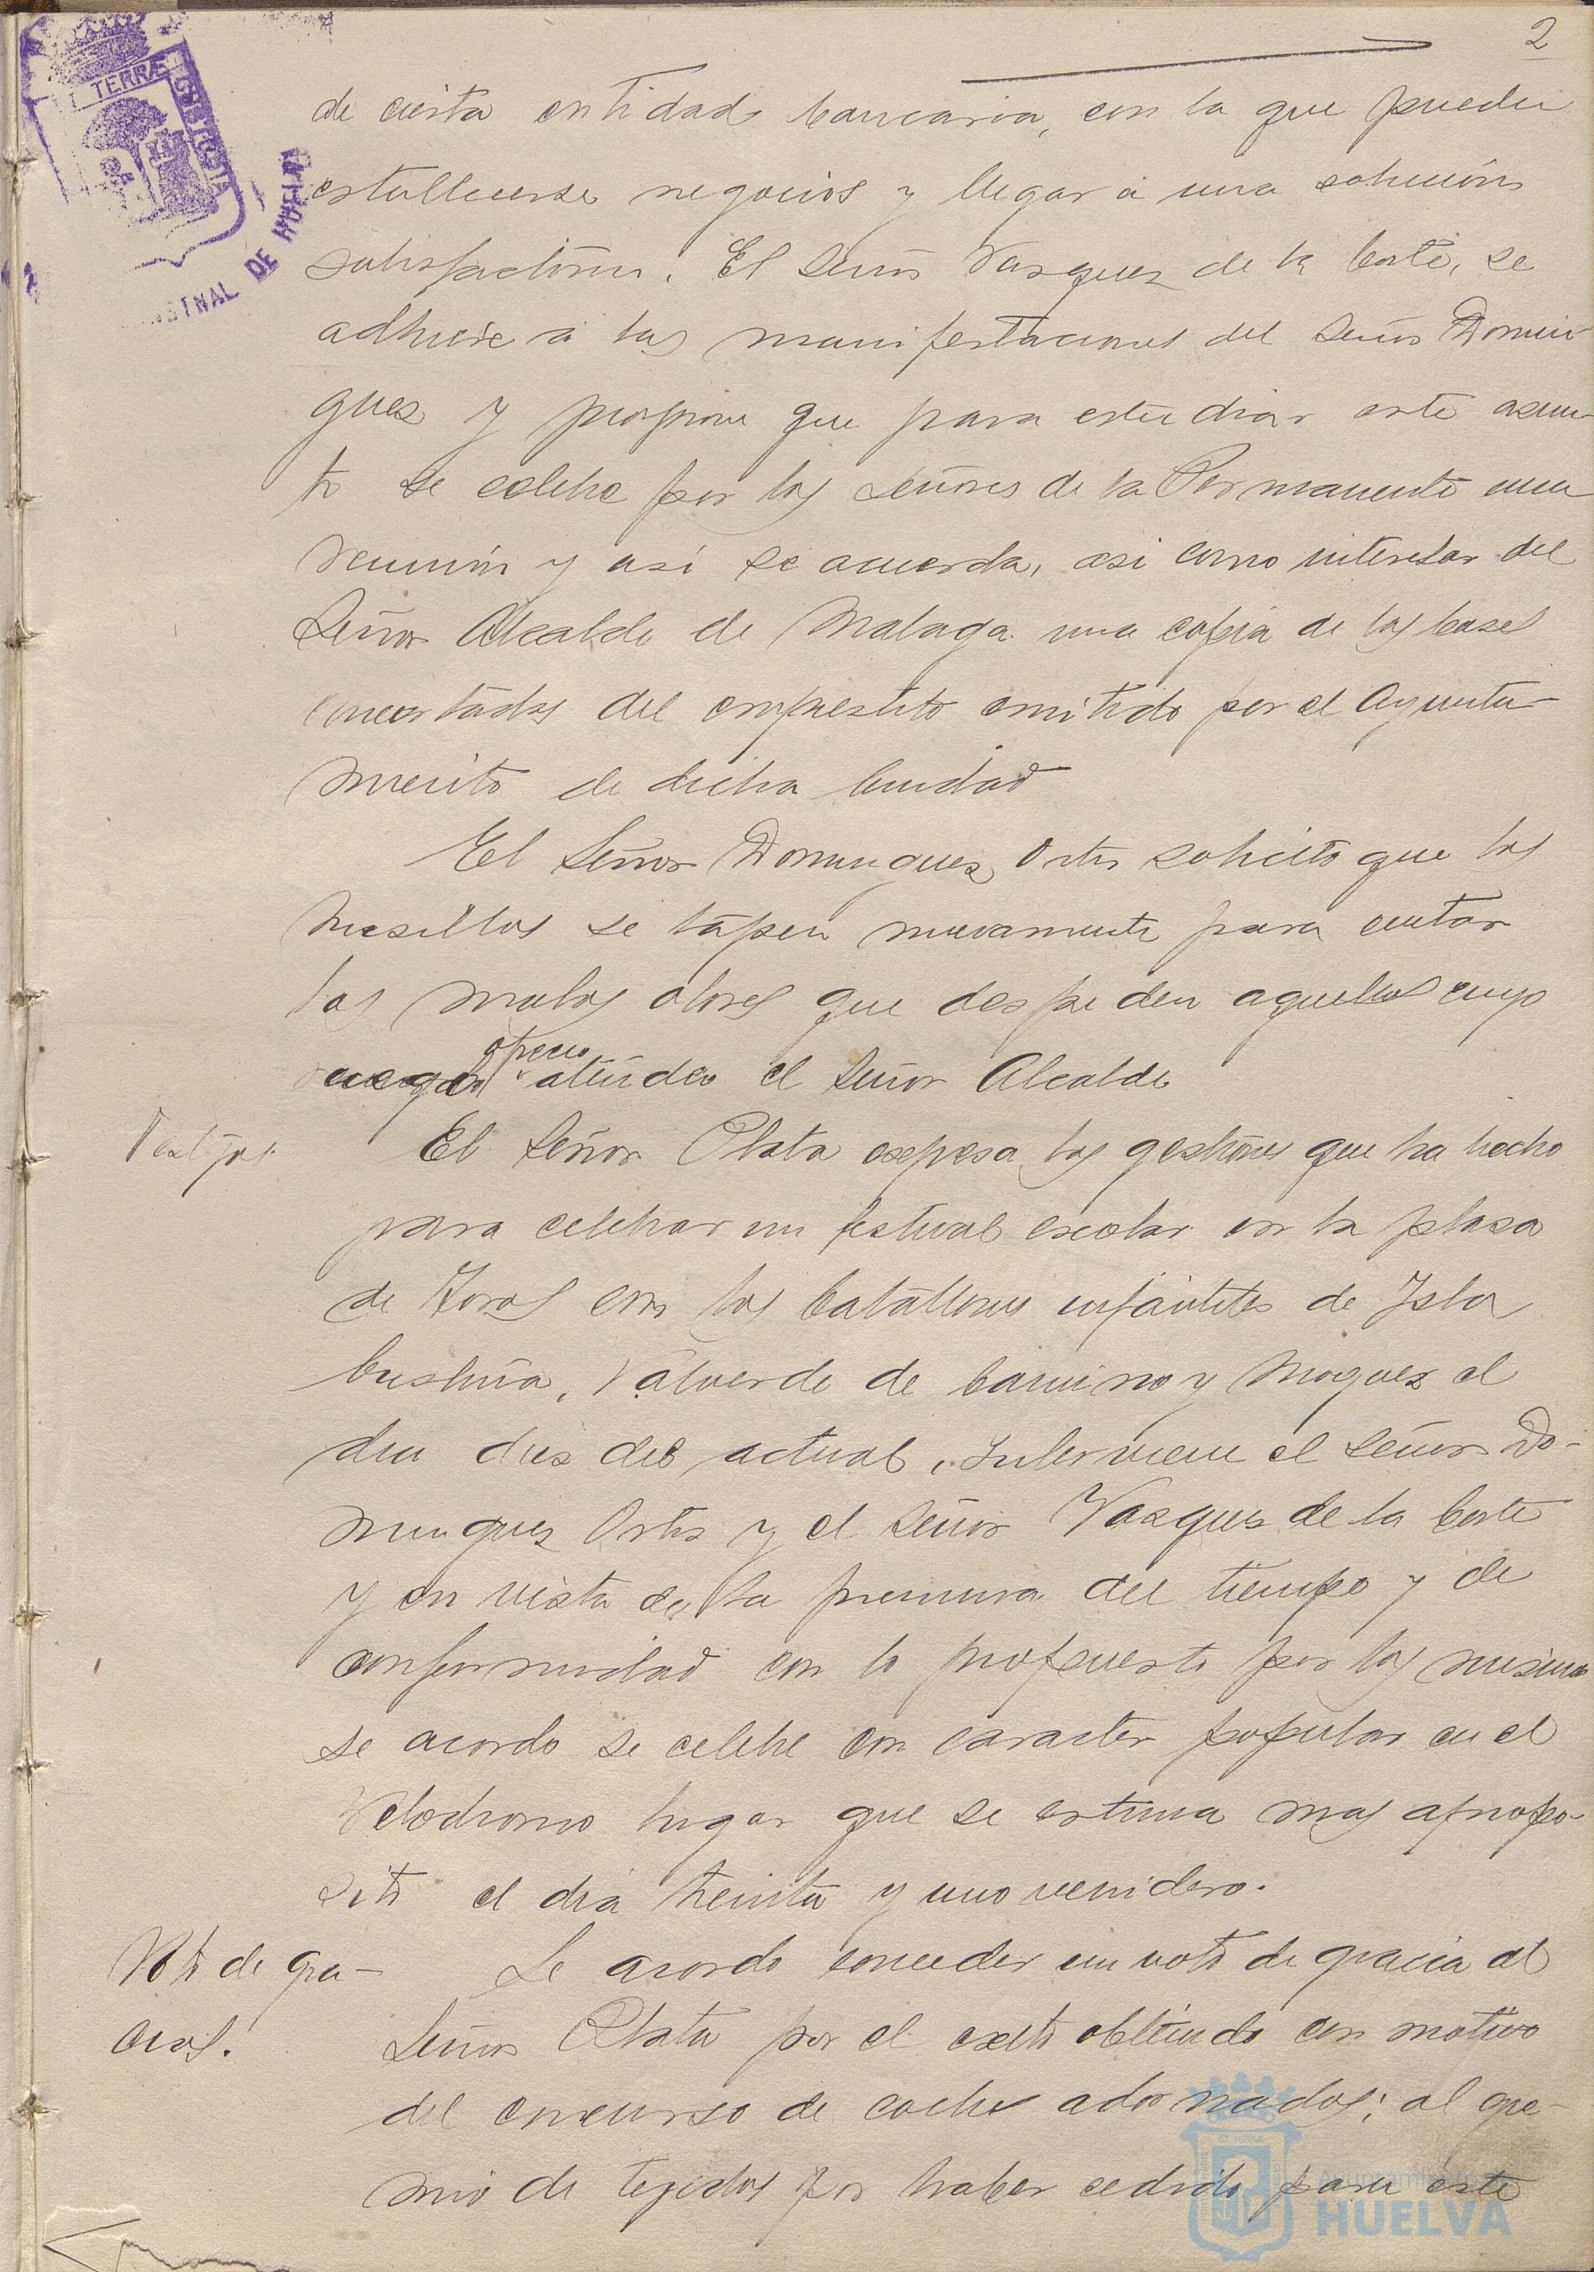 2
de cierta entidad bancaria, con la que pueden
establecerse negocios y llegar á una solución
satisfactoria. El Señor Vazquez de la Corte, se
adhiere á las manifestaciones del Señor Domin
guez y propone que para estudiar este asun
to se celebre por los señores de la Permanente una
reunión y así se acuerda, asi como interesar del
Señor Alcalde de Malaga una copia de las bases
concertadas del emprestito emitido por el Ayunta-
miento de dicha Ciudad
El Señor Dominguez Ortiz solicitó que los
husillos se tapen nuevamente para evitar
los malos olores que despiden aquellos cuyo
ruego ofreció atender el Señor Alcalde
Festejos. El Señor Plata expresa las gestiones que ha hecho
para celebrar un festival escolar en la plaza
de Toros con los batallones infantiles de Isla
Cristina, Valverde de Camino y Moguer el
dia dies del actual, Interviene el señor Do-
minguez Ortiz y el Señor Vazquez de la Corte
y en vista de la premura del tiempo y de
conformidad con lo propuesto por los mismos
se acordo se celebre con caracter popular en el
Velodromo lugar que se estima mas apropo-
sito el dia treinta y uno venidero.
Voto de gra- Se acordo conceder un voto de gracia al
cias. Señor Plata por el exito obtenido con motivo
del concurso de coches adornados; al gre-
mio de tejidos por haber cedido para este
TERRÆ
DE HUELVA
Ayuntamiento de
HUELVA